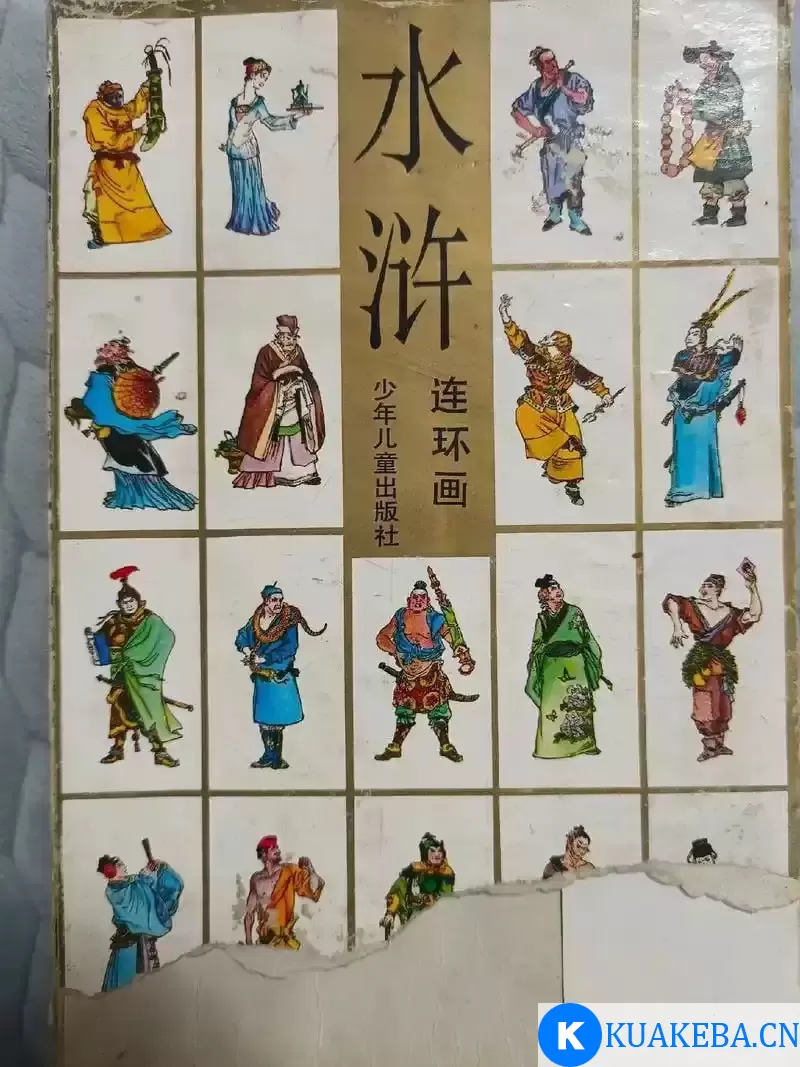 水浒
连环画
少年儿童出版社
K KUAKEBA.CN